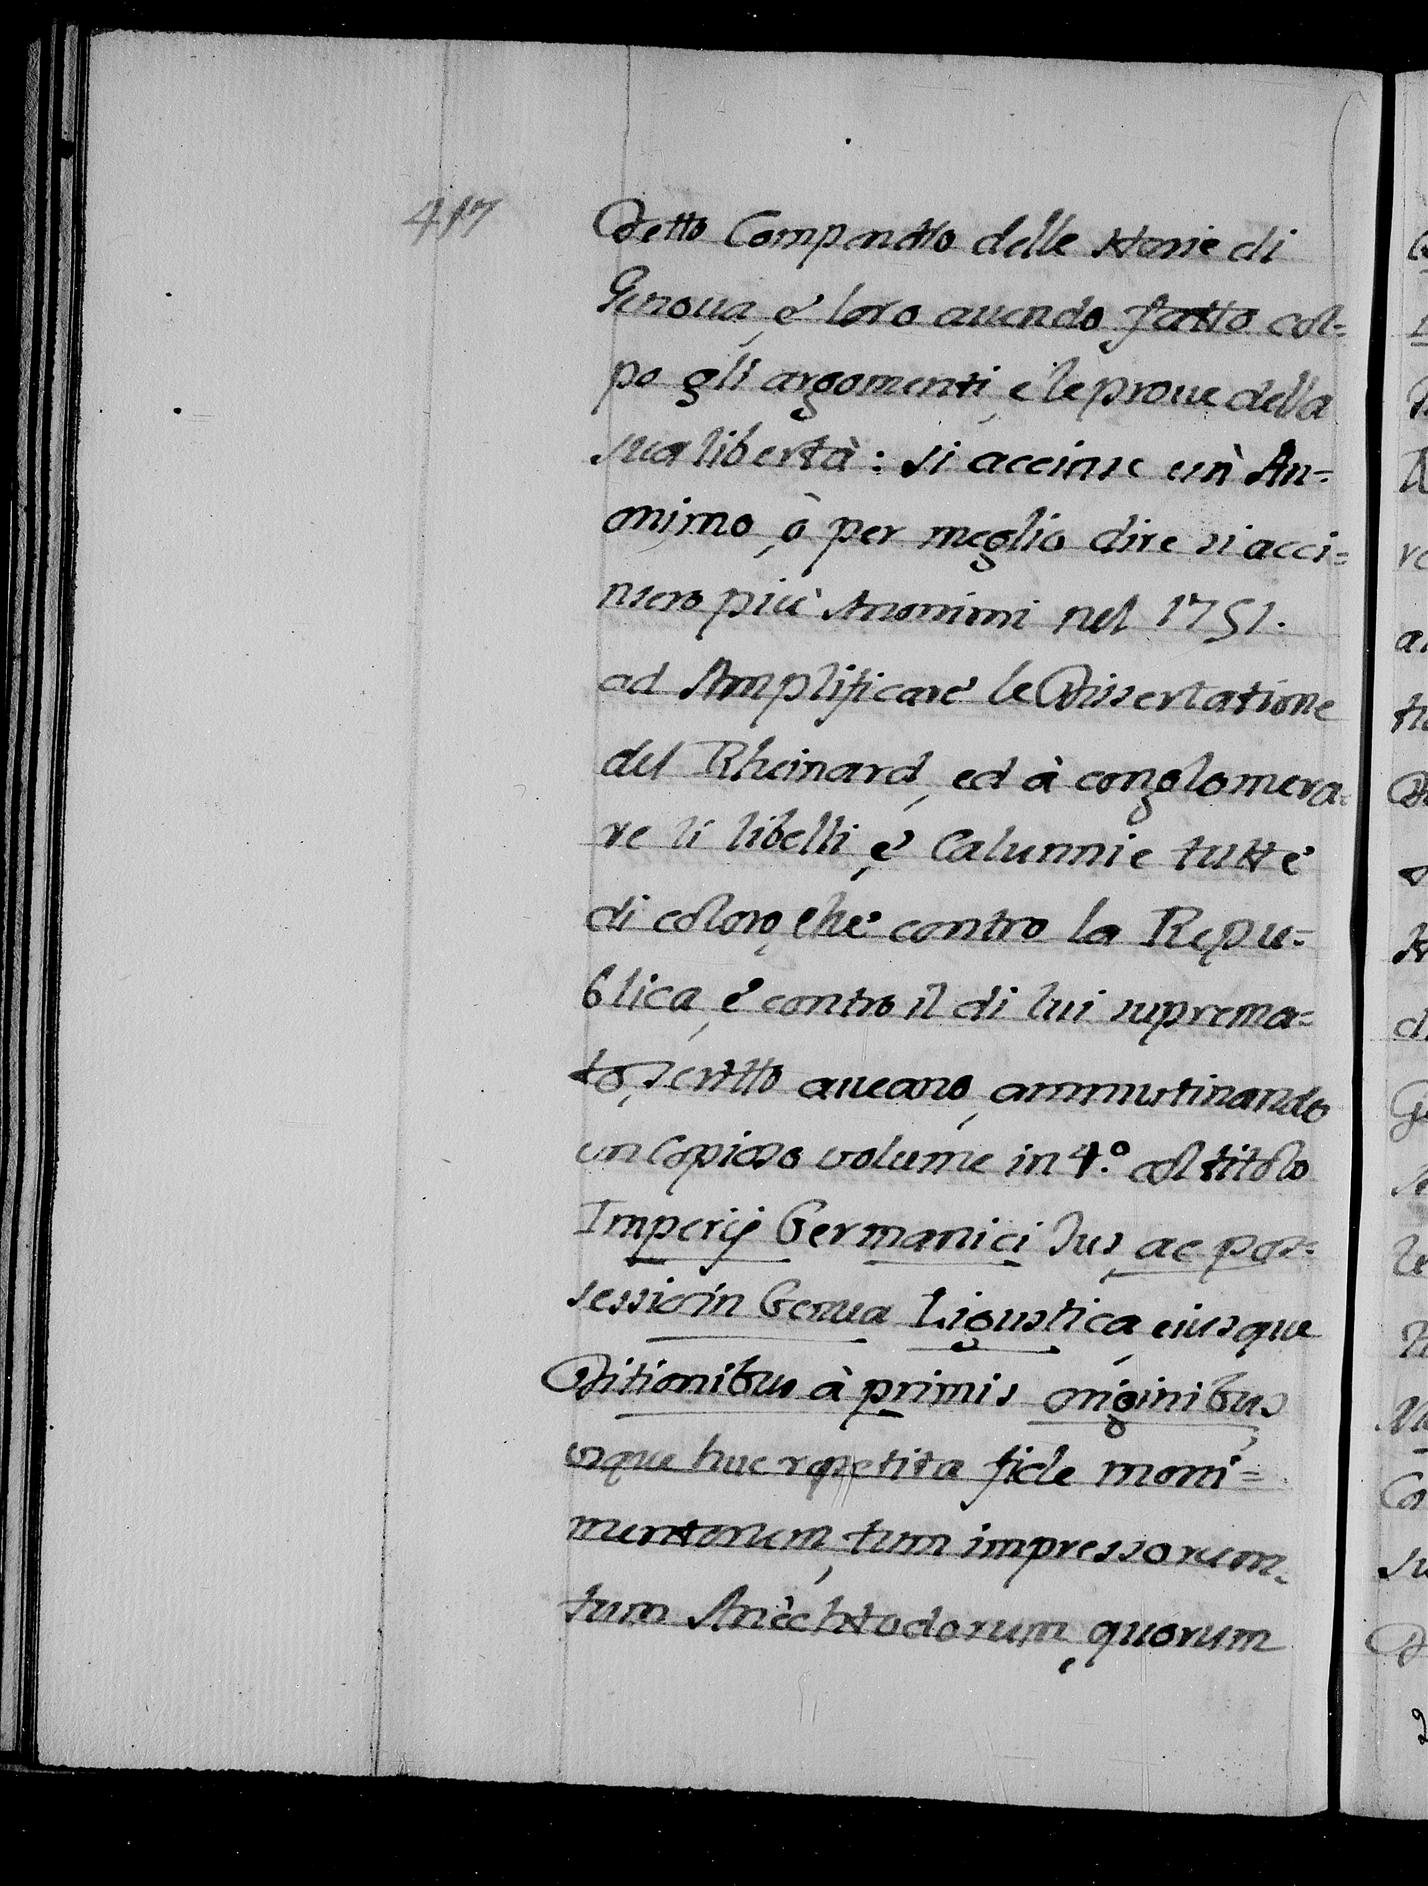 417
Detto Compendio delle Storie di
Genoua, e' loro auendo fatto col=
po gli argomenti, e' le proue della
sua libertà: si accinse un' An=
onimo, ò per meglio dire si acci=
nsero più Anonimi nel 1751.
ad Amplificare le Dissertatione
del Rheinard, ed à conglomera=
re li libelli, e' Calunnie tutte
di coloro, che contro la Repu=
blica, e' contro il di lui suprema=
to, scritto aueano, ammutinando
un Copioso volume in 4.º col titolo
Imperij Germanici Jus, ac pos=
sessio in Genua Ligustica, eiusque
Ditionibus à primis originibus,
usque huc repetita fide moni=
mentorum, tum impressorum.
tum Anechtodorum, quorum